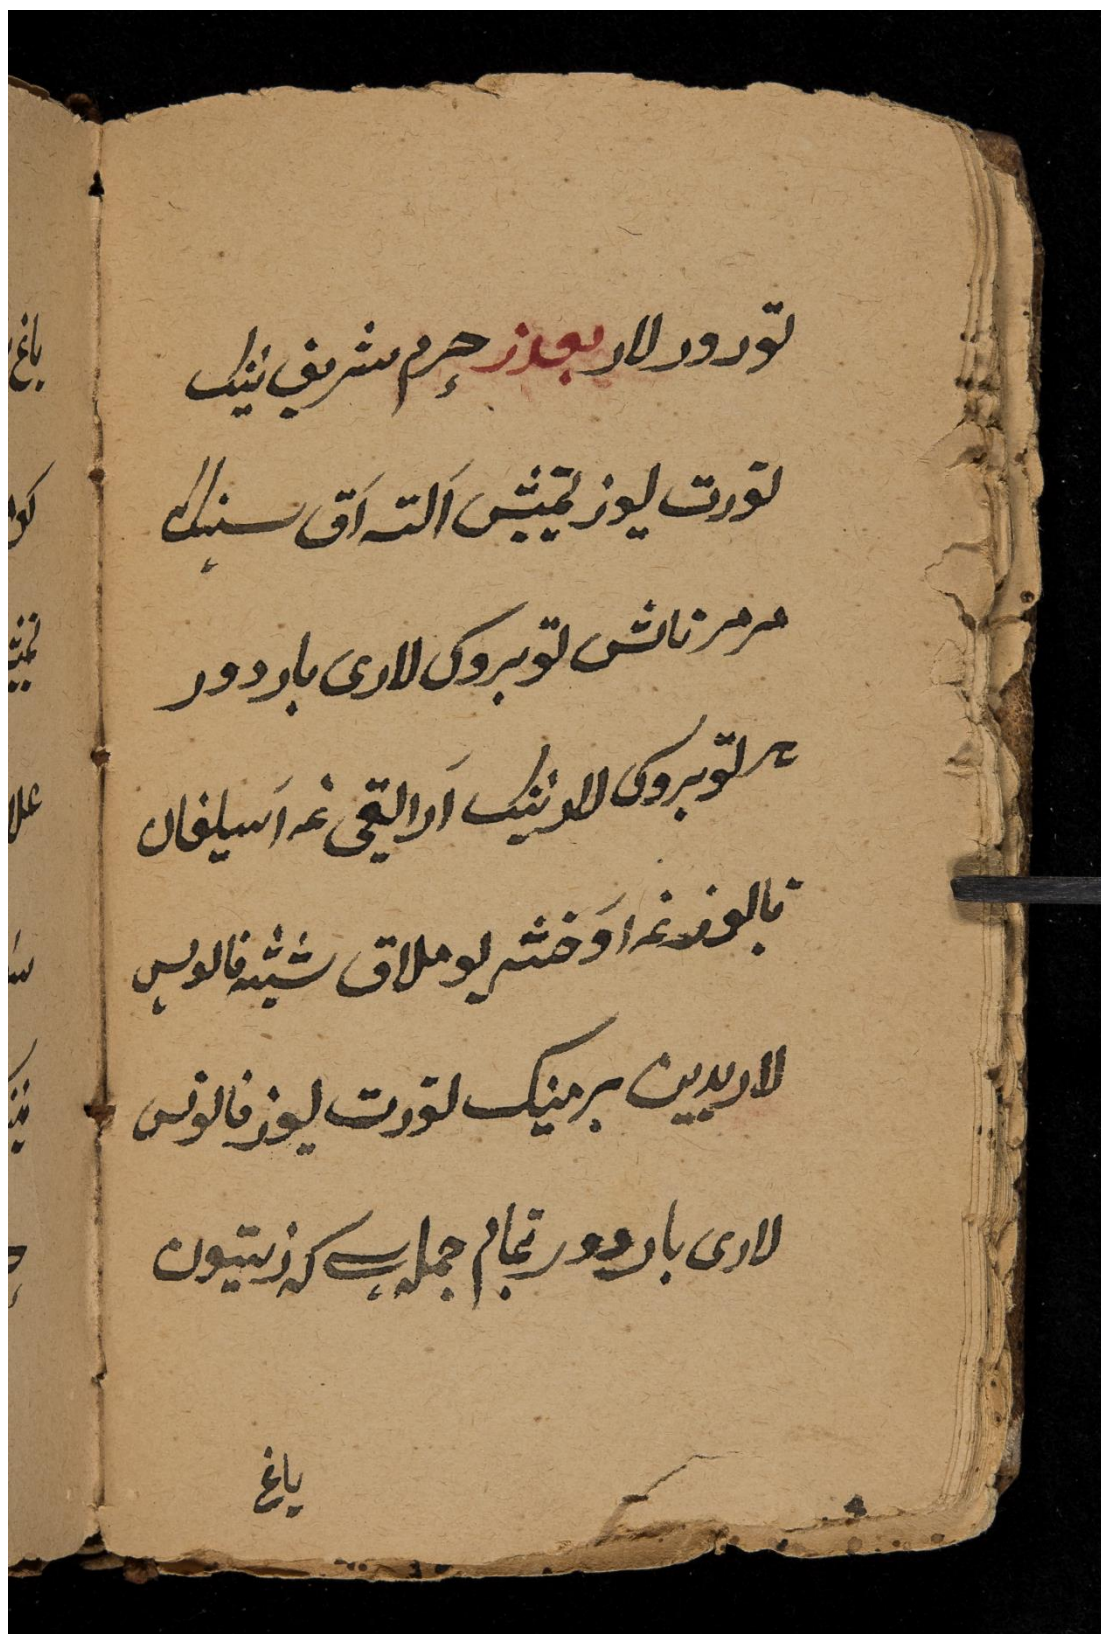 تورورلار بعدز حرم شریفی ننیک
تورت یوز تمیش آلته آق سنیک
مرمر تاش توبروکی لاری باردور
هر توبروکی لارنینک آرالیقی غه آسیلغان
اوخشه یوملاق شیشه فانوس
لاربدین بر مینک تورت یوز فانوس
لاری باردور تمام جمله سی که زیتیون
یاغ